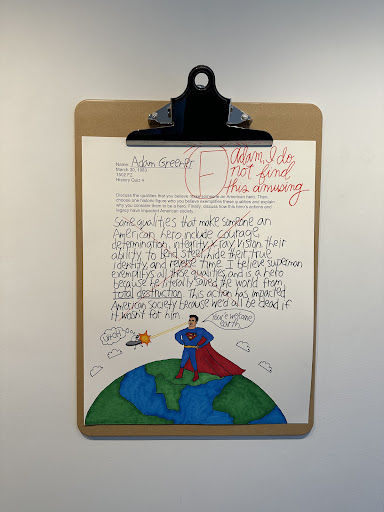 Name: Adam Greener
March 30, 1983
History Quiz 4
F
Adam, I do
not find
this amusing
Discuss the qualities that you believe make an American hero. Then,
choose one historic figure who you believe exemplifies these qualities and explain
why you consider them to be a hero. Finally, discuss how this hero's actions and
legacy have impacted American society.
Some qualities that make someone an
American hero include courage,
determination, integrity, x-ray vision, their
ability to bend steel, hide their true
identity, and reverse time. I believe superman
exemplifys all these qualities and is a hero
because he literally saved the world from
total destruction. This action has impacted
American society because we'd all be dead if
it wasn't for him.
You're welcome
Earth.